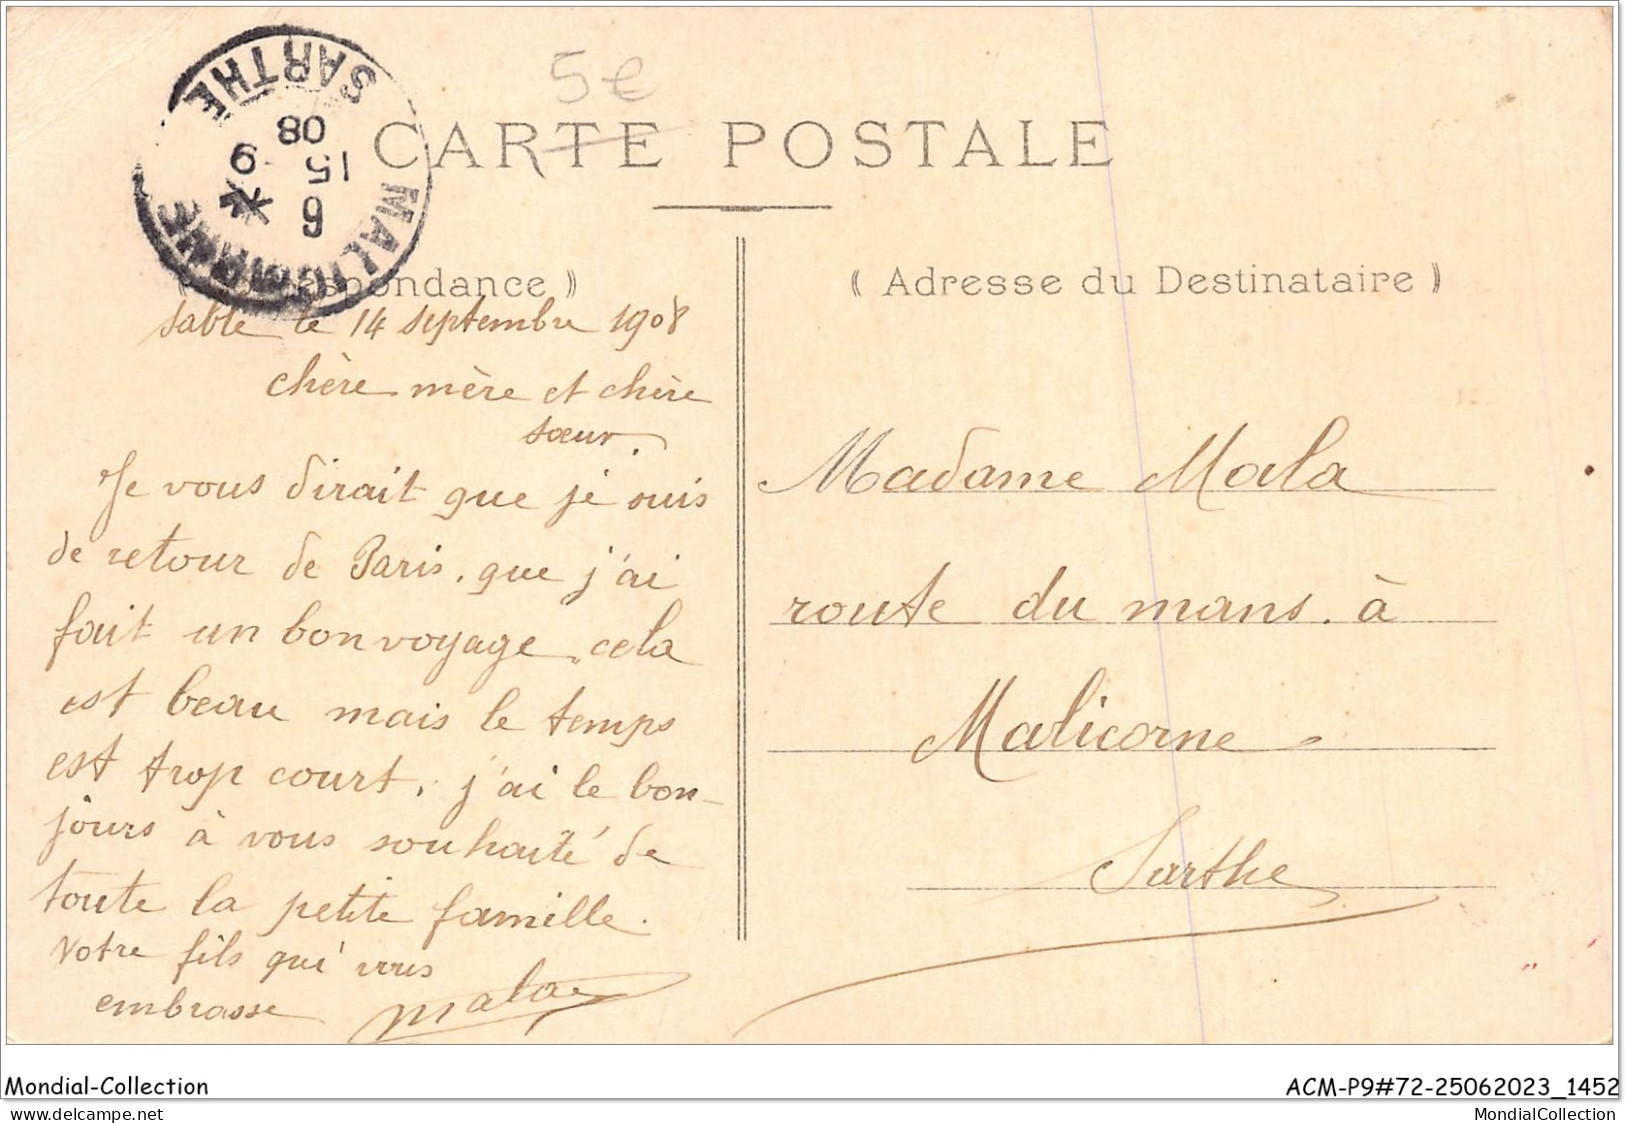 5€
CARTE POSTALE
MALICORNE
SARTHE
6
15
9
08
(Correspondance)
(Adresse du Destinataire)
Sablé le 14 septembre 1908
chère mère et chère
sœur.
Je vous dirait que je suis
de retour de Paris, que j'ai
fait un bon voyage, cela
est beau mais le temps
est trop court, j'ai le bon-
jours à vous souhaité de
toute la petite famille.
Votre fils qui vous
embrasse Mala
Madame Mala
route du mans. à
Malicorne
Sarthe
Mondial-Collection
ACM-P9#72-25062023_1452
delcampe.net
MondialCollection